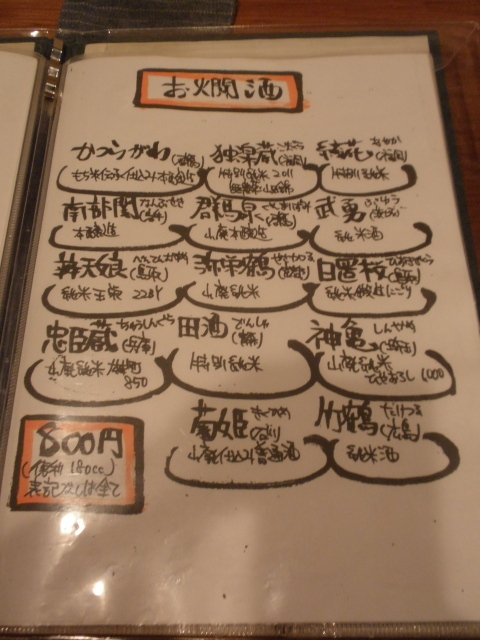 お燗酒
かつらがわ(群馬)
もち米四段仕込み本醸造
独楽蔵 こまぐら(福岡)
特別純米 2011
綾花 あやか(福岡)
特別純米
南部関 なんぶぜき(岩手)
本醸造
群馬泉 ぐんまいずみ(群馬)
山廃本醸造
武勇 ぶゆう(茨城)
純米酒
辨天娘 べんてんむすめ(鳥取)
純米玉栄 22BY
弥栄鶴 やさかつる(京都)
山廃純米
日置桜 ひおきざくら(鳥取)
純米 にごり
忠臣蔵 ちゅうしんぐら(兵庫)
山廃純米 850
田酒 でんしゅ(青森)
特別純米
神亀 しんかめ(埼玉)
山廃純米
ひやおろし 1000
菊姫 きくひめ(石川)
山廃仕込み普通酒
竹鶴 たけつる(広島)
純米酒
800円
(徳利 1800cc)
表記なしは全て